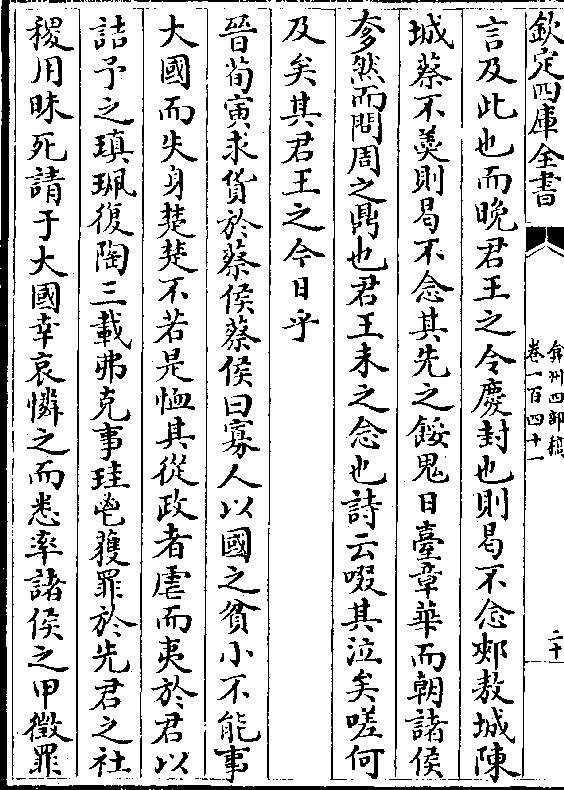 欽定四庫全書
弇州四部稿
卷一百四十一
二十
言及此也而晚君王之令慶封也則曷不念郟敖城陳
城蔡不羹則曷不念其先之餒鬼日臺章華而朝諸侯
奓然而問周之鼎也君王未之念也詩云啜其泣矣嗟何
及矣其君王之今日乎
晉荀寅求貨於蔡侯蔡侯曰寡人以國之貧小不能事
大國而失身楚楚不若是恤其從政者虐而夷於君以
詰予之瑱珮復陶三載弗克事珪鬯獲罪於先君之社
稷用昧死請于大國幸哀憐之而悉率諸侯之甲徵罪